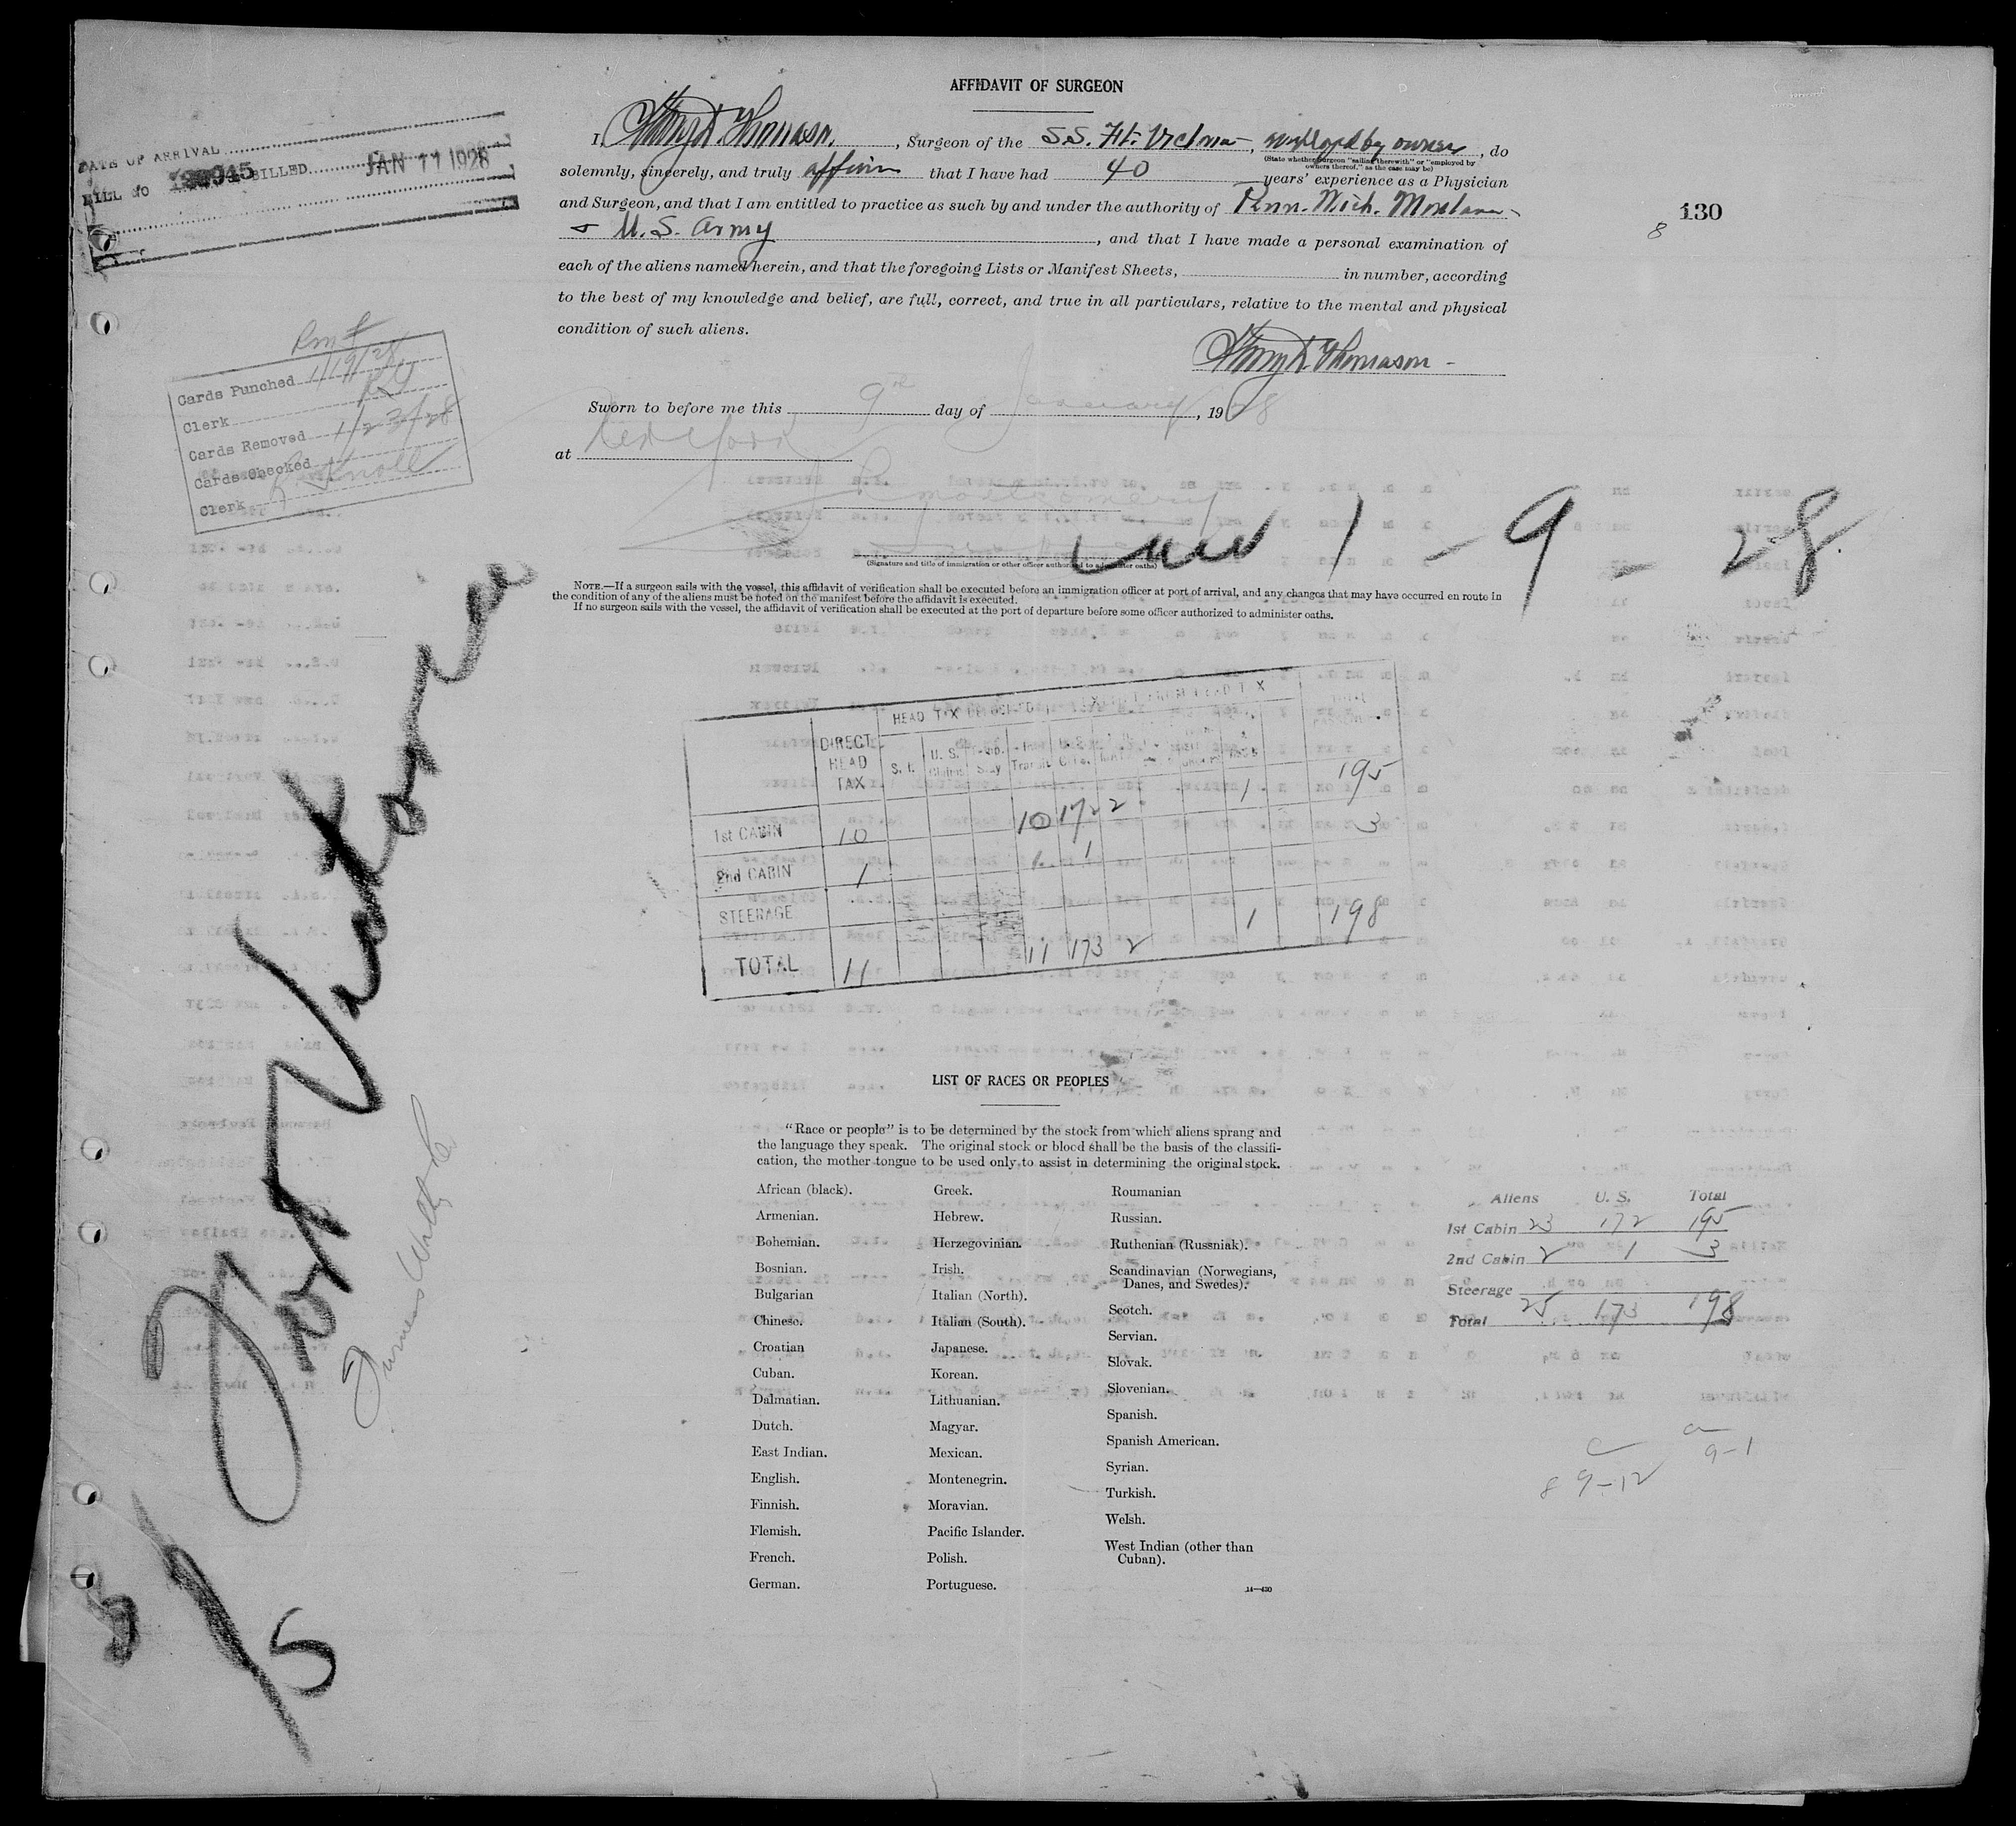 AFFIDAVIT OF SURGEON
I, Thomason, Surgeon of the S.S. Ft. Victoria, employed by owner, do
(State whether Surgeon "sailing therewith" or "employed by owners thereof," as the case may be)
solemnly, sincerely, and truly affirm that I have had 40 years' experience as a Physician
and Surgeon, and that I am entitled to practice as such by and under the authority of Penn. Mich. Montana
& U.S. Army, and that I have made a personal examination of
each of the aliens named herein, and that the foregoing Lists or Manifest Sheets, in number, according
to the best of my knowledge and belief, are full, correct, and true in all particulars, relative to the mental and physical
condition of such aliens.
Thomason
Sworn to before me this 9th day of January, 1928
at New York
(Signature and title of immigration or other officer authorized to administer oaths)
1-9-28
NOTE.—If a surgeon sails with the vessel, this affidavit of verification shall be executed before an immigration officer at port of arrival, and any changes that may have occurred en route in
the condition of any of the aliens must be noted on the manifest before the affidavit is executed.
If no surgeon sails with the vessel, the affidavit of verification shall be executed at the port of departure before some officer authorized to administer oaths.
DATE OF ARRIVAL
BILL No 945 BILLED JAN 11 1928
130
8
Cards Punched 1/19/28
Clerk
Cards Removed 1/23/28
Cards Checked
Clerk
Fort Victoria
Furness Withy Co
5
HEAD TAX
DIRECT HEAD TAX
S. I.
U. S.
Transit
1st CABIN 10 10 172 2 1 195
2nd CABIN 1 1 1 3
STEERAGE
TOTAL 11 11 173 2 1 198
LIST OF RACES OR PEOPLES
"Race or people" is to be determined by the stock from which aliens sprang and
the language they speak. The original stock or blood shall be the basis of the classifi-
cation, the mother tongue to be used only to assist in determining the original stock.
African (black).
Armenian.
Bohemian.
Bosnian.
Bulgarian
Chinese.
Croatian
Cuban.
Dalmatian.
Dutch.
East Indian.
English.
Finnish.
Flemish.
French.
German.
Greek.
Hebrew.
Herzegovinian.
Irish.
Italian (North).
Italian (South).
Japanese.
Korean.
Lithuanian.
Magyar.
Mexican.
Montenegrin.
Moravian.
Pacific Islander.
Polish.
Portuguese.
Roumanian
Russian.
Ruthenian (Russniak).
Scandinavian (Norwegians,
Danes, and Swedes).
Scotch.
Servian.
Slovak.
Slovenian.
Spanish.
Spanish American.
Syrian.
Turkish.
Welsh.
West Indian (other than
Cuban).
14—430
Aliens U. S. Total
1st Cabin 23 172 195
2nd Cabin 2 1 3
Steerage
Total 25 173 198
9-1
8 9-12